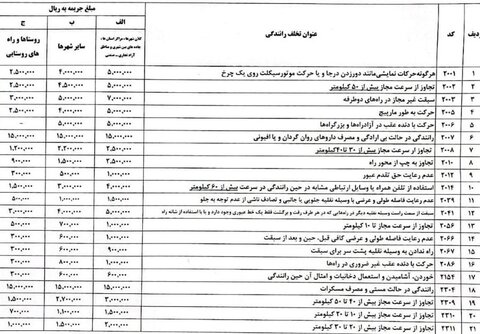 ردیف کد عنوان تخلف رانندگی مبلغ جریمه به ریال
الف ب ج
کلان شهرها، مراکز استان ها، جاده های بین شهری و مناطق آزاد تجاری ـ صنعتی سایر شهرها روستاها و راه های روستایی
۱ ۲۰۰۱ هرگونه حرکات نمایشی مانند دور زدن درجا و یا حرکت موتورسیکلت روی یک چرخ ۵,۰۰۰,۰۰۰ ۴,۰۰۰,۰۰۰ ۲,۵۰۰,۰۰۰
۲ ۲۰۰۲ تجاوز از سرعت مجاز بیش از ۵۰ کیلومتر ۵,۰۰۰,۰۰۰ ۴,۵۰۰,۰۰۰ ۲,۵۰۰,۰۰۰
۳ ۲۰۰۳ سبقت غیر مجاز در راه‌های دوطرفه ۷,۰۰۰,۰۰۰ ۵,۰۰۰,۰۰۰
۴ ۲۰۰۴ حرکت به طور مارپیچ ۵,۰۰۰,۰۰۰ ۴,۰۰۰,۰۰۰ ۲,۵۰۰,۰۰۰
۵ ۲۰۰۶ حرکت با دنده عقب در آزادراه‌ها و بزرگراه‌ها ۵,۰۰۰,۰۰۰
۶ ۲۰۰۷ رانندگی در حالت بی ارادگی و مصرف داروهای روان گردان و یا افیونی ۱۵,۰۰۰,۰۰۰ ۱۵,۰۰۰,۰۰۰ ۱۵,۰۰۰,۰۰۰
۷ ۲۰۰۸ تجاوز از سرعت مجاز بیش از ۳۰ تا ۴۰ کیلومتر ۲,۵۰۰,۰۰۰ ۲,۲۰۰,۰۰۰ ۱,۲۰۰,۰۰۰
۸ ۲۰۱۰ تجاوز به چپ از محور راه ۲,۵۰۰,۰۰۰ ۱,۵۰۰,۰۰۰ ۹۰۰,۰۰۰
۹ ۲۰۱۲ عدم رعایت حق تقدم عبور ۱,۰۰۰,۰۰۰ ۵۰۰,۰۰۰ ۳۰۰,۰۰۰
۱۰ ۲۰۱۴ استفاده از تلفن همراه یا وسایل ارتباطی مشابه در حین رانندگی در سرعت بیش از ۶۰ کیلومتر ۴,۰۰۰,۰۰۰ ۳,۰۰۰,۰۰۰ ۱,۵۰۰,۰۰۰
۱۱ ۲۰۳۹ عدم رعایت فاصله طولی و عرضی با وسیله نقلیه جلویی یا جانبی و تصادف ناشی از عدم توجه به جلو ۱,۰۰۰,۰۰۰
۱۲ ۲۰۴۱ ۵,۰۰۰,۰۰۰ ۴,۰۰۰,۰۰۰ ۳,۰۰۰,۰۰۰
۱۳ ۲۰۵۶ تجاوز از سرعت مجاز تا ۱۰ کیلومتر
۱۴ ۲۰۶۵ عدم رعایت فاصله طولی و عرضی کافی قبل، حین و بعد از سبقت
۱۵ ۲۰۶۷ راه ندادن به وسیله نقلیه پشت سر برای سبقت
۱۶ ۲۰۸۶ حرکت با دنده عقب غیر ضروری در راه‌ها
۱۷ ۲۱۵۴ خوردن، آشامیدن و استعمال دخانیات و امثال آن حین رانندگی
۱۸ ۲۳۰۴ رانندگی در حالت مستی و مصرف مسکرات ۱۵,۰۰۰,۰۰۰ ۱۵,۰۰۰,۰۰۰ ۱۵,۰۰۰,۰۰۰
۱۹ ۲۳۰۹ تجاوز از سرعت مجاز بیش از ۴۰ تا ۵۰ کیلومتر ۳,۰۰۰,۰۰۰ ۲,۷۰۰,۰۰۰ ۱,۵۰۰,۰۰۰
۲۰ ۲۳۱۰ تجاوز از سرعت مجاز بیش از ۱۰ تا ۲۰ کیلومتر
۲۱ ۲۳۱۱ تجاوز از سرعت مجاز بیش از ۲۰ تا ۳۰ کیلومتر ۲,۰۰۰,۰۰۰ ۱,۵۰۰,۰۰۰ ۱,۰۰۰,۰۰۰